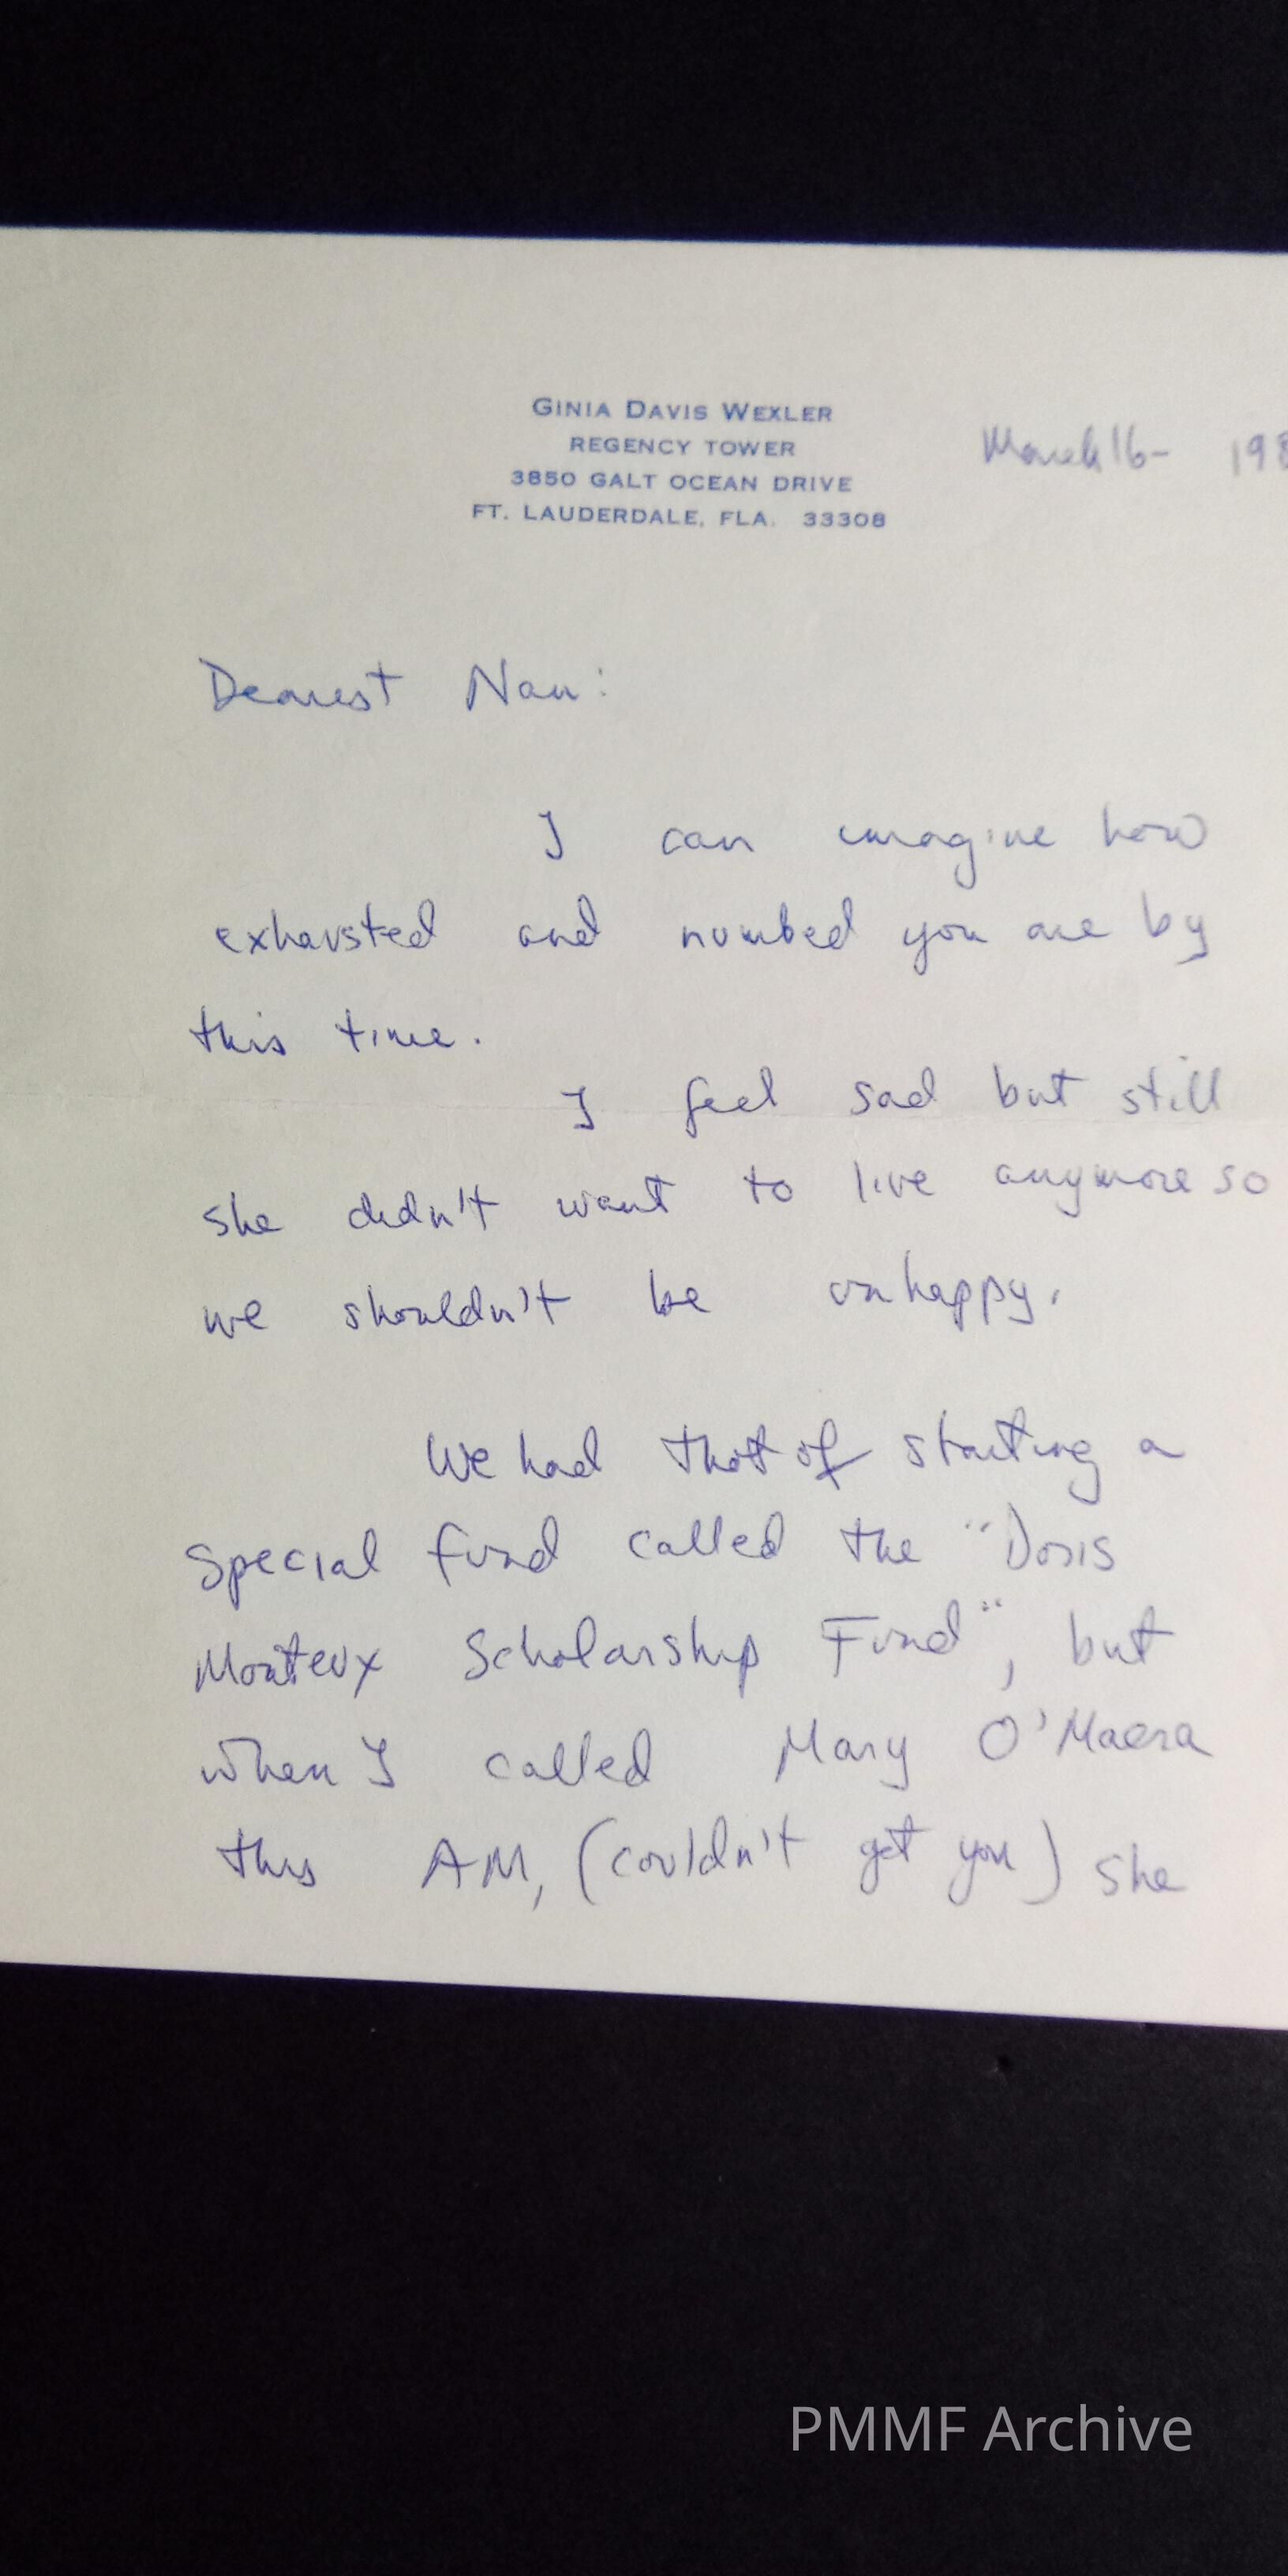 GINIA DAVIS WEXLER
REGENCY TOWER
3850 GALT OCEAN DRIVE
FT. LAUDERDALE, FLA. 33308
March 16- 198
Dearest Nan:
I can imagine how
exhausted and numbed you are by
this time.
I feel sad but still
she didn't want to live anymore so
we shouldn't be unhappy.
We had thot of starting a
special fund called the "Doris
Monteux Scholarship Fund", but
when I called Mary O'Maera
this AM, (couldn't get you) she
PMMF Archive